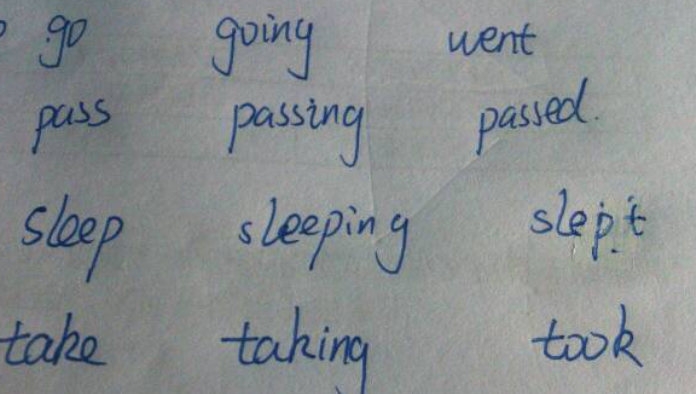 go going went
pass passing passed.
sleep sleeping slept
take taking took